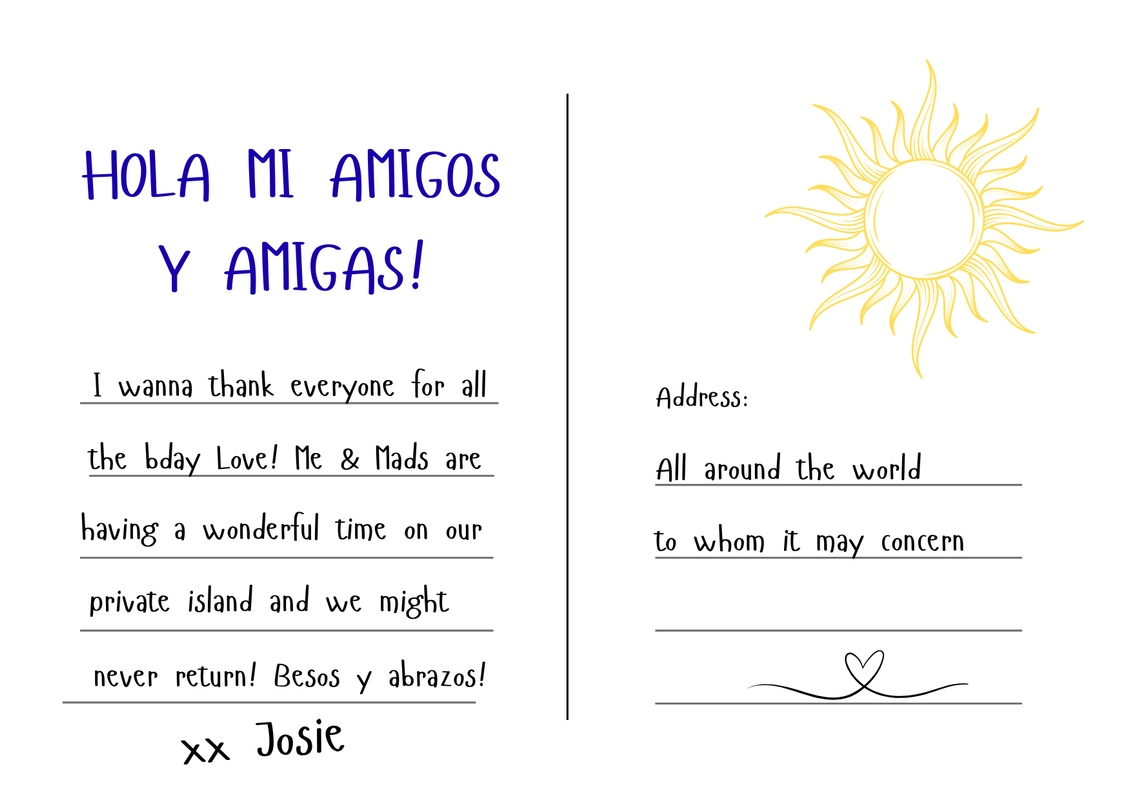 HOLA MI AMIGOS
Y AMIGAS!
I wanna thank everyone for all
the bday Love! Me & Mads are
having a wonderful time on our
private island and we might
never return! Besos y abrazos!
xx Josie
Address:
All around the world
to whom it may concern